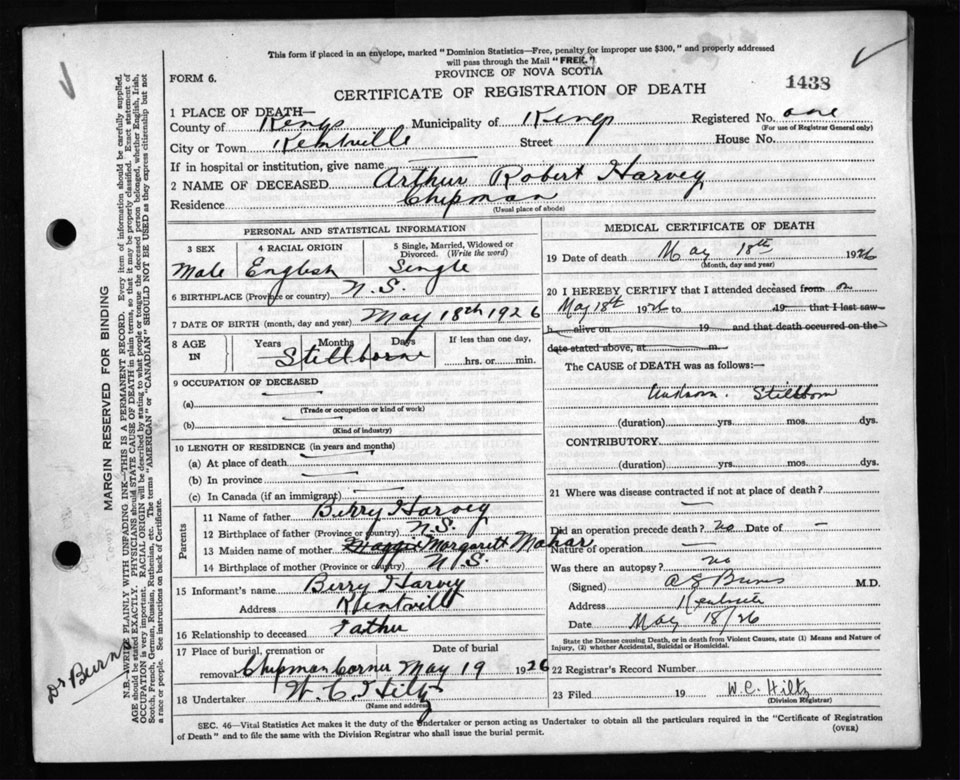 This form if placed in an envelope, marked "Dominion Statistics—Free, penalty for improper use $300," and properly addressed
will pass through the Mail "FREE."
PROVINCE OF NOVA SCOTIA
FORM 6.
CERTIFICATE OF REGISTRATION OF DEATH
1438
1 PLACE OF DEATH—
County of Kings Municipality of Kings Registered No. one
(For use of Registrar General only)
City or Town Kentville Street House No.
If in hospital or institution, give name
2 NAME OF DECEASED Arthur Robert Harvey
Residence Chipman
(Usual place of abode)
PERSONAL AND STATISTICAL INFORMATION
3 SEX 4 RACIAL ORIGIN 5 Single, Married, Widowed or
Divorced. (Write the word)
Male English Single
6 BIRTHPLACE (Province or country) N.S.
7 DATE OF BIRTH (month, day and year) May 18th 1926
8 AGE IN Years Months Days If less than one day,
Stillborne hrs. or min.
9 OCCUPATION OF DECEASED
(a)
(Trade or occupation or kind of work)
(b)
(Kind of industry)
10 LENGTH OF RESIDENCE (in years and months)
(a) At place of death
(b) In province
(c) In Canada (if an immigrant)
Parents
11 Name of father Berry Harvey
12 Birthplace of father (Province or country) N.S.
13 Maiden name of mother Maggie Margarett
14 Birthplace of mother (Province or country) N.S.
15 Informant's name Berry Harvey
Address Kentville
16 Relationship to deceased Father
17 Place of burial, cremation or Date of burial
removal Chipman Corner May 19 1926
18 Undertaker W. C. Hiltz
(Name and address)
MEDICAL CERTIFICATE OF DEATH
19 Date of death May 18th 1926
(Month, day and year)
20 I HEREBY CERTIFY that I attended deceased from on
May 18th 1926 to 19 that I last saw
h alive on 19 and that death occurred on the
date stated above, at m.
The CAUSE OF DEATH was as follows:—
Stillborn
(duration) yrs. mos. dys.
CONTRIBUTORY
(duration) yrs. mos. dys.
21 Where was disease contracted if not at place of death?
Did an operation precede death? no Date of —
Nature of operation —
Was there an autopsy? no
(Signed) Burns M.D.
Address Kentville
Date May 18/26
State the Disease causing Death, or in death from Violent Causes, state (1) Means and Nature of
Injury, (2) whether Accidental, Suicidal or Homicidal.
22 Registrar's Record Number
23 Filed 19 W. C. Hiltz
(Division Registrar)
SEC. 46—Vital Statistics Act makes it the duty of the Undertaker or person acting as Undertaker to obtain all the particulars required in the "Certificate of Registration
of Death" and to file the same with the Division Registrar who shall issue the burial permit.
(OVER)
MARGIN RESERVED FOR BINDING
N.B.—WRITE PLAINLY WITH UNFADING INK—THIS IS A PERMANENT RECORD. Every item of information should be carefully supplied.
AGE should be stated EXACTLY. PHYSICIANS should STATE CAUSE OF DEATH in plain terms, so that it may be properly classified. Exact statement of
OCCUPATION is very important. RACIAL ORIGIN will be described by stating to what people or tongue the deceased person belonged, whether English, Irish,
Scotch, French, German, Russian, Ruthenian, etc. The terms "AMERICAN" or "CANADIAN" SHOULD NOT BE USED as they express citizenship but not
a race or people. See instructions on back of Certificate.
Dr Burns